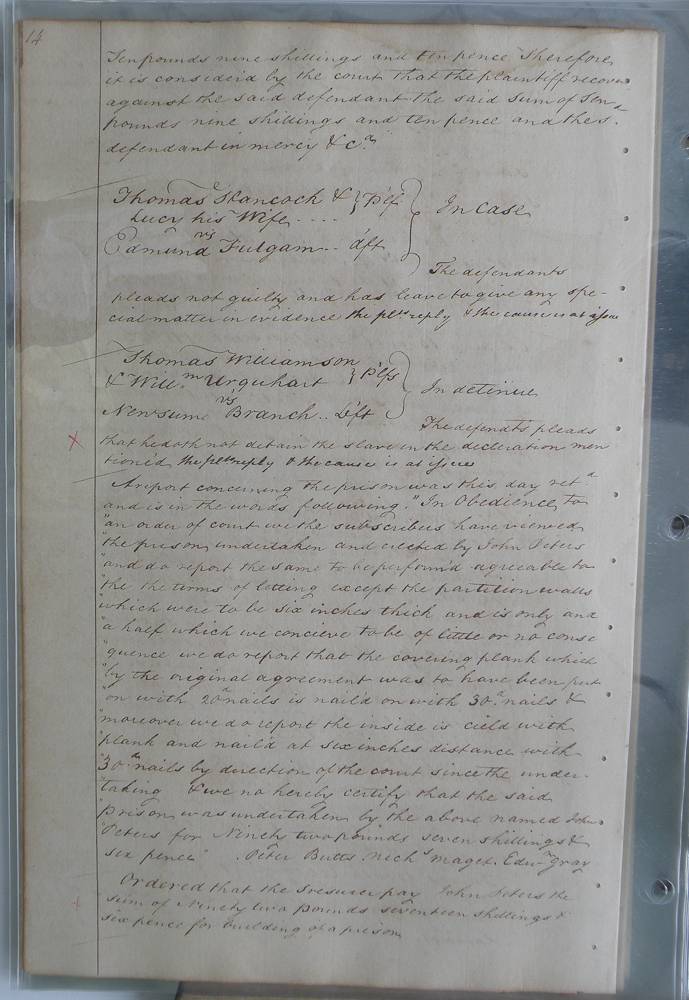 14
Ten pounds nine shillings and ten pence Therefore
it is consider'd by the court that the plaintiff recover
against the said defendant the said sum of Ten
pounds nine shillings and ten pence and the s.
defendant in mercy &c.a
Thomas Hancock & } Plf
Lucy his Wife ....
vs
Edmund Fulgam .. dft
In Case
The defendants
pleads not guilty and has leave to give any spe-
cial matter in evidence the plts reply & the cause is at issue
Thomas Williamson
& Will.m Urquhart } Plfs
vs
Newsume Branch .. Dft
In detinue
The defendts pleads
that he doth not detain the slave in the decleration men
tioned, the plts reply & the cause is at issue
A report concerning the prison was this day ret.d
and is in the words following. "In Obedience to
"an order of court we the subscribers have viewed
"the prison undertaken and erected by John Peters
"and do report the same to be perform'd agreeable to
"the the terms of letting except the partition walls
"which were to be six inches thick and is only and
"a half which we concieve to be of little or no conse
"quence we do report that the covering plank which
"by the original agreement was to have been put
"on with 20d nails is nail'd on with 30d. nails &
"moreover we do report the inside is cield with
"plank and nail'd at six inches distance with
"30d. nails by direction of the court since the under-
"taking & we no hereby certify that the said
"prison was undertaken by the above named John
"Peters for Ninety two pounds seven shillings &
six pence" . Peter Butts. Nichs Maget. Edwn Gray
Ordered that the Tresurer pay John Peters the
sum of Ninety two pounds seventeen shillings &
six pence for building of a prison